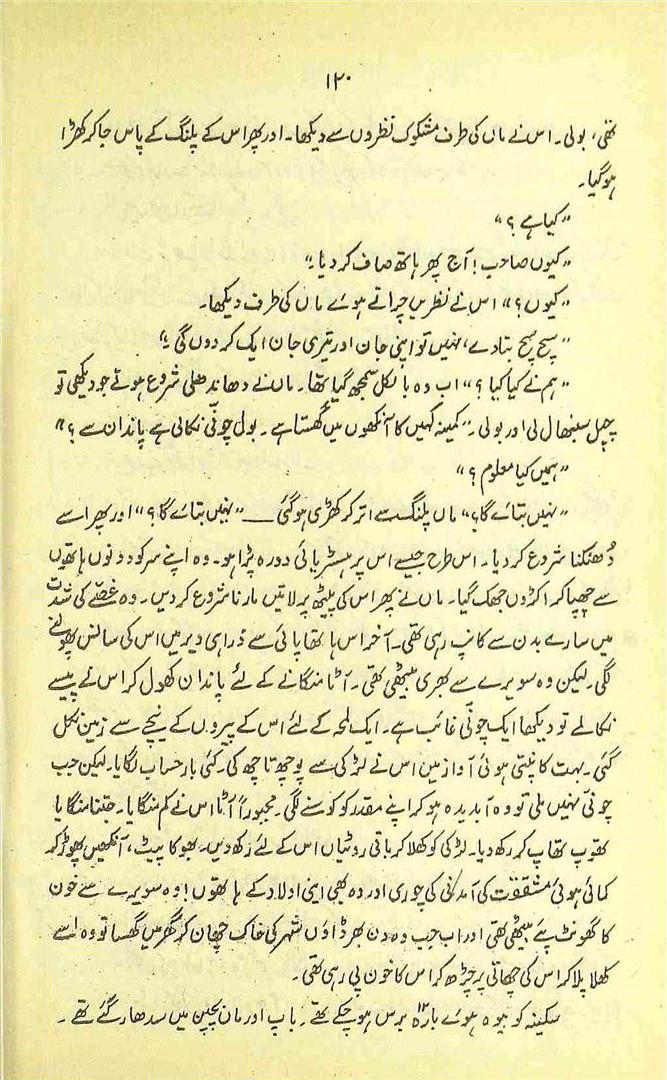 ۱۲۰
تھی، بولی۔ اس نے ماں کی طرف مشکوک نظروں سے دیکھا۔ اور پھر اس کے پلنگ کے پاس جا کر کھڑا
ہو گیا۔
”کیا ہے؟“
”کیوں صاحب! آج پھر ہاتھ صاف کر دیا۔“
”کیوں؟“ اس نے نظریں چراتے ہوئے ماں کی طرف دیکھا۔
”سچ سچ بتا دے، نہیں تو اپنی جان اور تیری جان ایک کر دوں گی۔“
”ہم نے کیا کیا؟“ اب وہ بالکل سمجھ گیا تھا۔ ماں نے دھاندھلی شروع ہوتے جو دیکھی تو
چپل سنبھال لی اور بولی۔ ”کمینہ کہیں کا آنکھوں میں گھستا ہے۔ بول چونی نکالی ہے پاندان سے؟“
”ہمیں کیا معلوم؟“
”نہیں بتائے گا؟“ ماں پلنگ سے اتر کر کھڑی ہو گئی ـــــ ”نہیں بتائے گا؟“ اور پھر اسے
دُھنکنا شروع کر دیا۔ اس طرح جیسے اس پر ہسٹریائی دورہ پڑا ہو۔ وہ اپنے سر کو دونوں ہاتھوں
سے چھپا کر اکڑوں جھک گیا۔ ماں نے پھر اس کی پیٹھ پر لاتیں مارنا شروع کر دیں۔ وہ غصّے کی شدت
میں سارے بدن سے کانپ رہی تھی۔ آخر اس ہاتھا پائی سے ذرا ہی دیر میں اس کی سانس پھولنے
لگی۔ لیکن وہ سویرے سے بھری بیٹھی تھی۔ آٹا منگانے کے لئے پاندان کھول کر اس نے پیسے
نکالے تو دیکھا ایک چونی غائب ہے۔ ایک لمحہ کے لئے اس کے پیروں کے نیچے سے زمین نکل
گئی۔ بہت کانپتی ہوئی آواز میں اس نے لڑکی سے پوچھ تاچھ کی۔ کئی بار حساب لگایا۔ لیکن جب
چونی نہیں ملی تو وہ آبدیدہ ہو کر اپنے مقدر کو کوسنے لگی۔ مجبوراً آٹا اس نے کم منگایا۔ جتنا منگایا
تھوپ تھاپ کر رکھ دیا۔ لڑکی کو کھلا کر باقی روٹیاں اس کے لئے رکھ دیں۔ بھوکا پیٹ، آنکھیں پھوڑ کر
کمائی ہوئی مشققت کی آمدنی کی چوری اور وہ بھی اپنی اولاد کے ہاتھوں! وہ سویرے سے خون
کا گھونٹ پئے بیٹھی تھی اور اب جب وہ دن بھر ڈاؤں شہر کی خاک چھان کر گھر میں گھسا تو وہ اسے
کھلا پلا کر اس کی چھاتی پر چڑھ کر اس کا خون پی رہی تھی۔
سکینہ کو بیوہ ہوئے بارہ ۱۲ برس ہو چکے تھے۔ باپ اور ماں بچپن میں سدھار گئے تھے۔